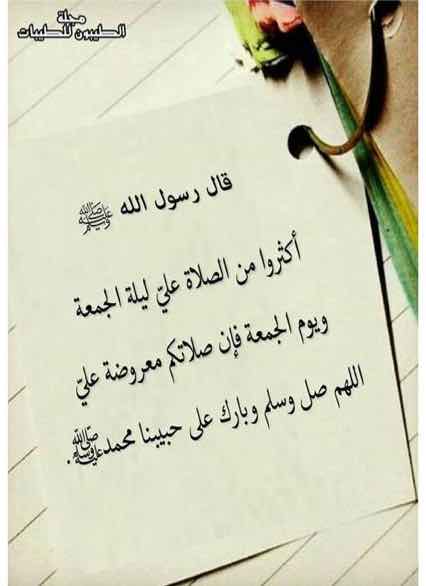 مجلة
الطيبون للطيبات
قال رسول الله ﷺ
أكثروا من الصلاة عليّ ليلة الجمعة
ويوم الجمعة فإن صلاتكم معروضة عليّ
اللهم صل وسلم وبارك على حبيبنا محمدﷺ.